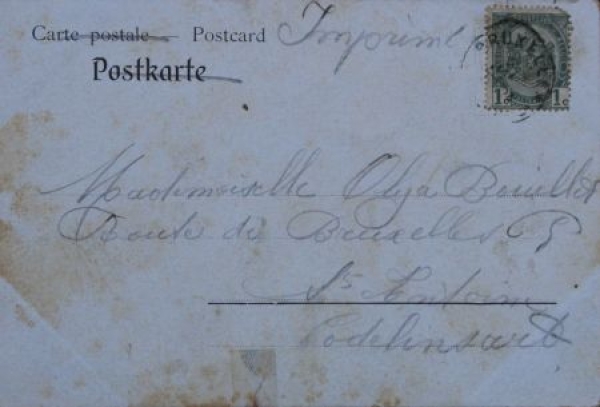 Carte postale Postcard Imprimé
Postkarte
BRUXELL
1c 1c
Mademoiselle Olga Bouillot
Route de Bruxelles 5
St Antoine
Lodelinsart